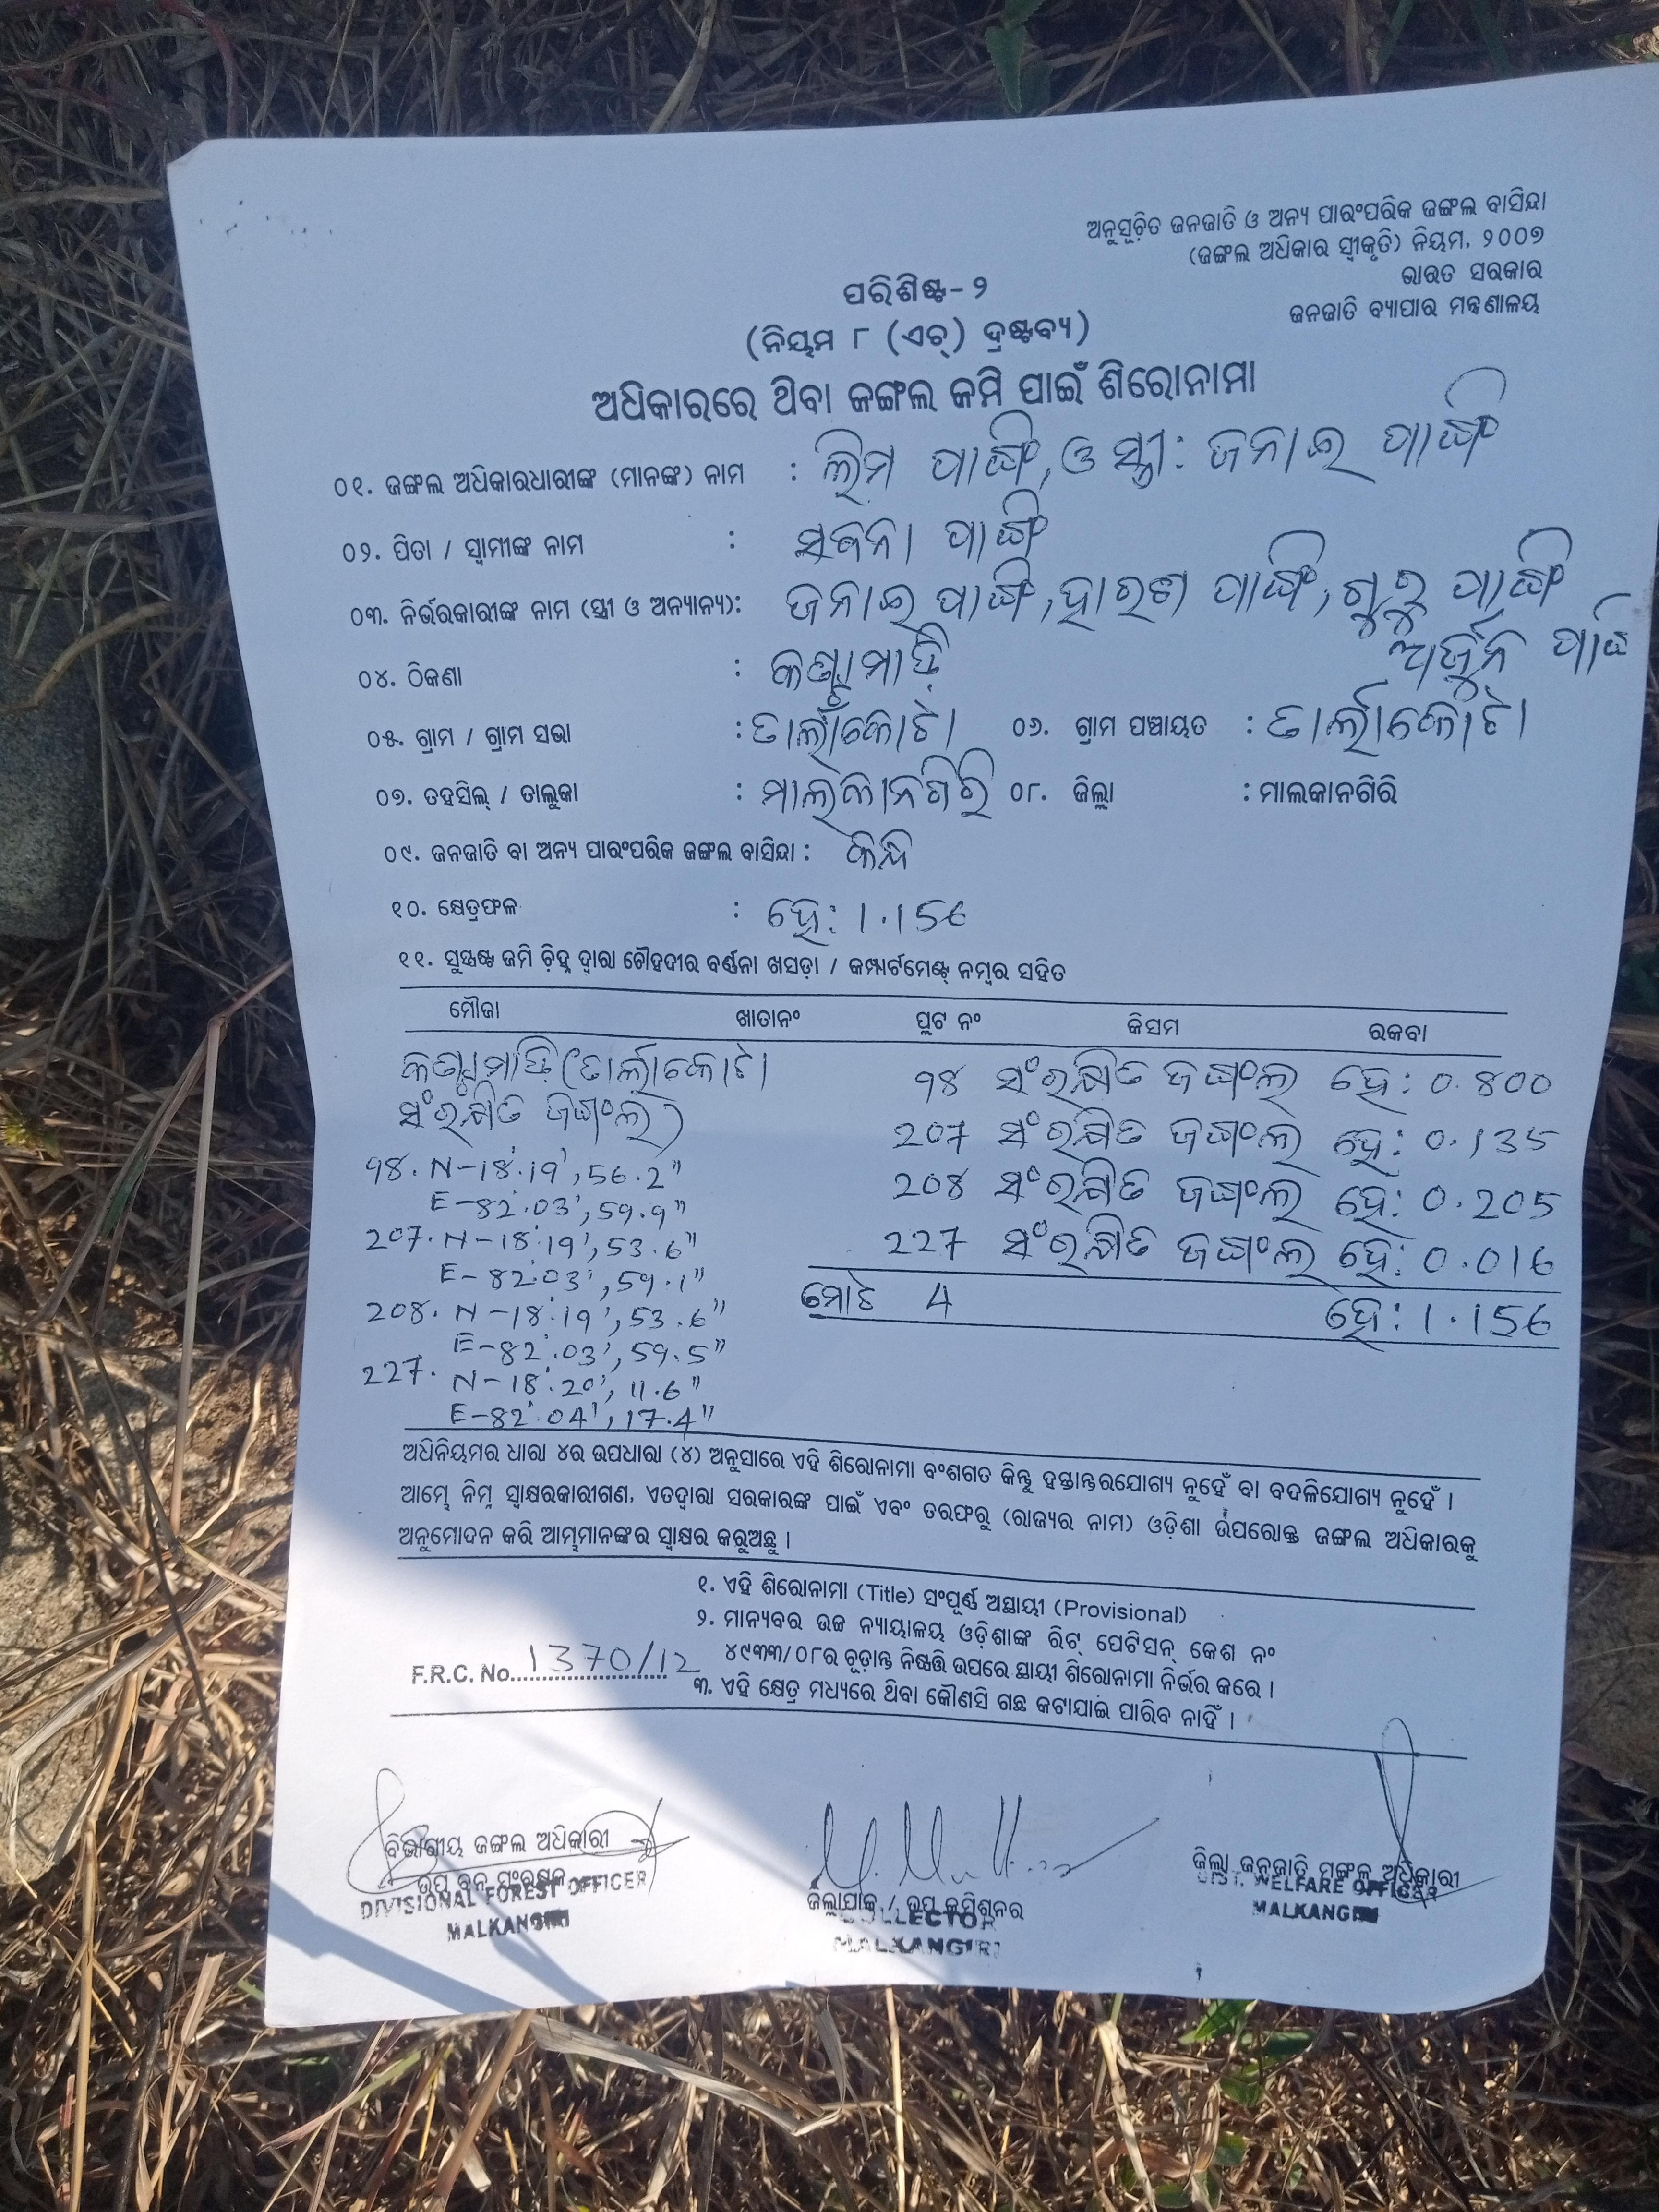 ଅନୁସୂଚିତ ଜନଜାତି ଓ ଅନ୍ୟ ପାରଂପରିକ ଜଙ୍ଗଲ ବାସିନ୍ଦା
(ଜଙ୍ଗଲ ଅଧିକାର ସ୍ୱୀକୃତି) ନିୟମ, ୨୦୦୭
ଭାରତ ସରକାର
ଜନଜାତି ବ୍ୟାପାର ମନ୍ତ୍ରଣାଳୟ
ପରିଶିଷ୍ଟ-୨
(ନିୟମ ୮ (ଏଚ୍) ଦ୍ରଷ୍ଟବ୍ୟ)
ଅଧିକାରରେ ଥିବା ଜଙ୍ଗଲ ଜମି ପାଇଁ ଶିରୋନାମା
୦୧. ଜଙ୍ଗଲ ଅଧିକାରଧାରୀଙ୍କ (ମାନଙ୍କ) ନାମ : ଲିମ ପାଙ୍ଗି, ଓ ସ୍ତ୍ରୀ: ଜନାଇ ପାଙ୍ଗି
୦୨. ପିତା / ସ୍ୱାମୀଙ୍କ ନାମ : ପାଙ୍ଗି
୦୩. ନିର୍ଭରକାରୀଙ୍କ ନାମ (ସ୍ତ୍ରୀ ଓ ଅନ୍ୟାନ୍ୟ): ଜନାଇ ପାଙ୍ଗି, ପାଙ୍ଗି, ଗୁରୁ ପାଙ୍ଗି
ଅର୍ଜୁନ
୦୪. ଠିକଣା :
୦୫. ଗ୍ରାମ / ଗ୍ରାମ ସଭା : ତାର୍ଲାକୋଟା ୦୬. ଗ୍ରାମ ପଞ୍ଚାୟତ : ତାର୍ଲାକୋଟା
୦୭. ତହସିଲ୍ / ତାଲୁକା : ମାଲକାନଗିରି ୦୮. ଜିଲ୍ଲା : ମାଲକାନଗିରି
୦୯. ଜନଜାତି ବା ଅନ୍ୟ ପାରଂପରିକ ଜଙ୍ଗଲ ବାସିନ୍ଦା :
୧୦. କ୍ଷେତ୍ରଫଳ : ହେ: 1.156
୧୧. ସୁସ୍ପଷ୍ଟ ଜମି ଚିହ୍ନ ଦ୍ୱାରା ଚୌହଦୀର ବର୍ଣ୍ଣନା ଖସଡ଼ା / କମ୍ପାର୍ଟମେଣ୍ଟ୍ ନମ୍ବର ସହିତ
ମୌଜା ଖାତାନଂ ପ୍ଲଟ ନଂ କିସମ ରକବା
(ତାର୍ଲାକୋଟା 98 ସଂରକ୍ଷିତ ଜଙ୍ଗଲ ହେ: 0.800
ସଂରକ୍ଷିତ ଜଙ୍ଗଲ) 207 ସଂରକ୍ଷିତ ଜଙ୍ଗଲ ହେ: 0.135
98. N-18°.19', 56.2" 208 ସଂରକ୍ଷିତ ଜଙ୍ଗଲ ହେ: 0.205
E-82°.03', 59.9"
207. N-18°.19', 53.6" 227 ସଂରକ୍ଷିତ ଜଙ୍ଗଲ ହେ: 0.016
E-82°.03', 59.1" ମୋଟ 4 ହେ: 1.156
208. N-18°.19', 53.6"
E-82°.03', 59.5"
227. N-18°.20', 11.6"
E-82°.04', 17.4"
ଅଧିନିୟମର ଧାରା ୪ର ଉପଧାରା (୪) ଅନୁସାରେ ଏହି ଶିରୋନାମା ବଂଶଗତ କିନ୍ତୁ ହସ୍ତାନ୍ତରଯୋଗ୍ୟ ନୁହେଁ ବା ବଦଳିଯୋଗ୍ୟ ନୁହେଁ ।
ଆମ୍ଭେ ନିମ୍ନ ସ୍ୱାକ୍ଷରକାରୀଗଣ, ଏତଦ୍ୱାରା ସରକାରଙ୍କ ପାଇଁ ଏବଂ ତରଫରୁ (ରାଜ୍ୟର ନାମ) ଓଡ଼ିଶା ଉପରୋକ୍ତ ଜଙ୍ଗଲ ଅଧିକାରକୁ
ଅନୁମୋଦନ କରି ଆମ୍ଭମାନଙ୍କର ସ୍ୱାକ୍ଷର କରୁଅଛୁ ।
୧. ଏହି ଶିରୋନାମା (Title) ସଂପୂର୍ଣ୍ଣ ଅସ୍ଥାୟୀ (Provisional)
୨. ମାନ୍ୟବର ଉଚ୍ଚ ନ୍ୟାୟାଳୟ ଓଡ଼ିଶାଙ୍କ ରିଟ୍ ପେଟିସନ୍ କେଶ ନଂ
୪୯୩୩/୦୮ର ଚୂଡ଼ାନ୍ତ ନିଷ୍ପତ୍ତି ଉପରେ ସ୍ଥାୟୀ ଶିରୋନାମା ନିର୍ଭର କରେ ।
F.R.C. No. 1370/12
୩. ଏହି କ୍ଷେତ୍ର ମଧ୍ୟରେ ଥିବା କୌଣସି ଗଛ କଟାଯାଇ ପାରିବ ନାହିଁ ।
ବିଭାଗୀୟ ଜଙ୍ଗଲ ଅଧିକାରୀ
ଉପ ବନ ସଂରକ୍ଷକ
DIVISIONAL FOREST OFFICER
MALKANGIRI
ଜିଲ୍ଲାପାଳ / ଉପ କମିଶନର
COLLECTOR
MALKANGIRI
ଜିଲ୍ଲା ଜନଜାତି ମଙ୍ଗଳ ଅଧିକାରୀ
DIST. WELFARE OFFICER
MALKANGIRI